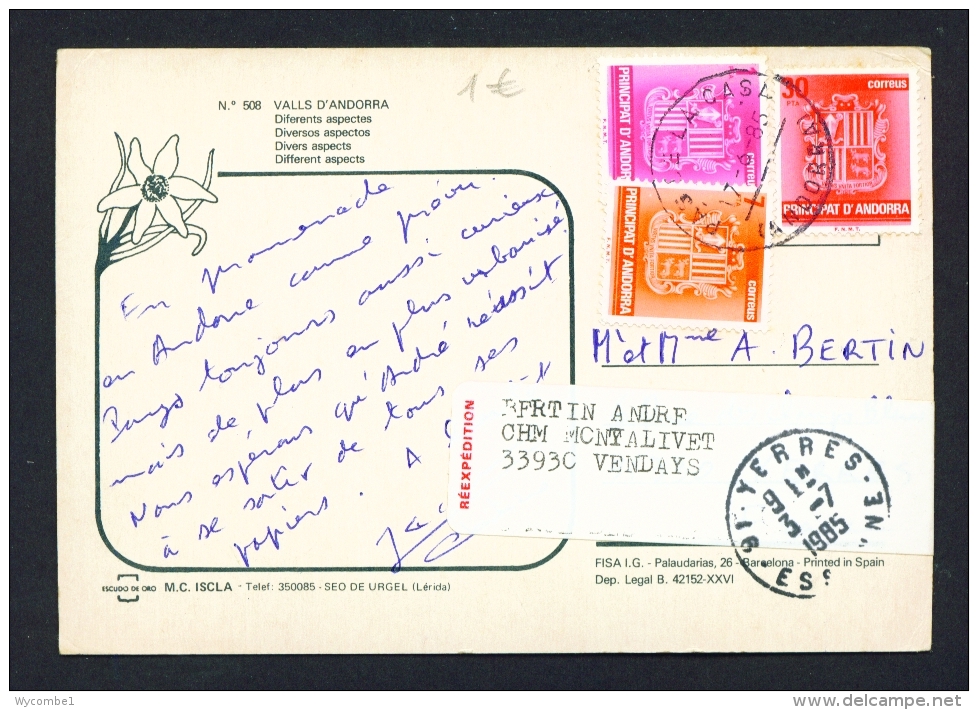 1 €
N.º 508 VALLS D'ANDORRA
Diferents aspectes
Diversos aspectos
Divers aspects
Different aspects
En promenade
en Andorre comme prévu.
Pays toujours aussi curieux
mais de plus en plus urbanisé.
Nous espérons qu'André réussit
à se sortir de tous ses
papiers. A
PRINCIPAT D'ANDORRA
correus
F.N.M.T.
7
PRINCIPAT D'ANDORRA
correus
F.N.M.T.
30
PTA
correus
PRINCIPAT D'ANDORRA
F.N.M.T.
LA CASA
(ANDORRA)
Mr et Mme A. BERTIN
RÉEXPÉDITION
BERTIN ANDRE
CHM MONTALIVET
33930 VENDAYS
91-YERRES
ESSONNE
1985
ESCUDO DE ORO
M.C. ISCLA - Telef: 350085 - SEO DE URGEL (Lérida)
FISA I.G. - Palaudarias, 26 - Barcelona - Printed in Spain
Dep. Legal B. 42152-XXVI
Wycombe1
delcampe.net